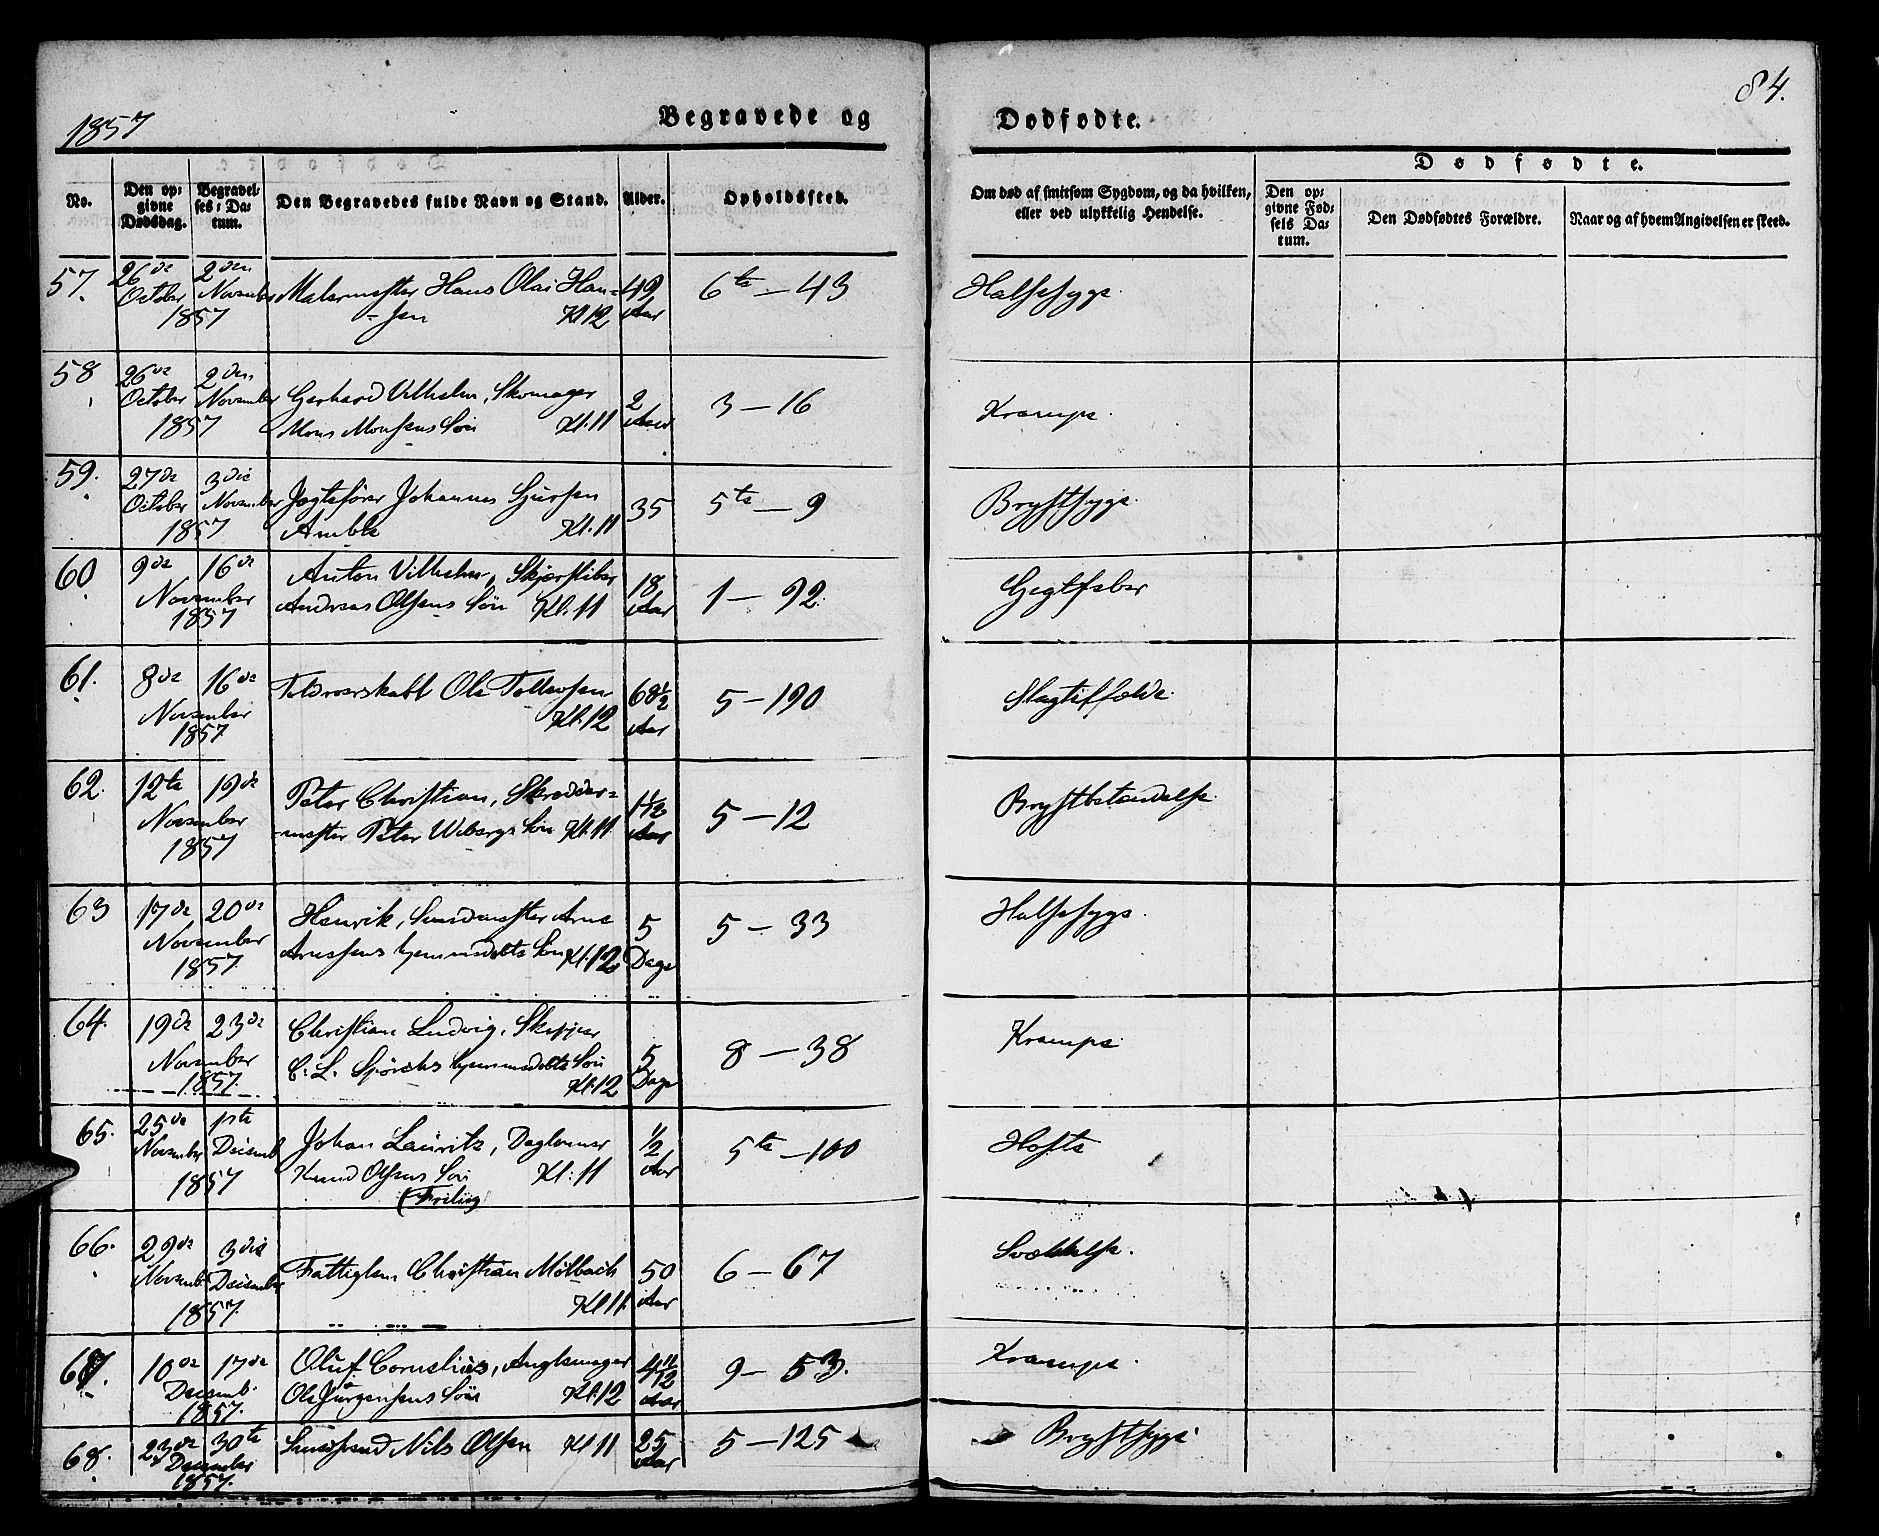 1857
Begravede og Dødfødte.
84.
No.
Den opgivne Dødsdag.
Begravelses-Datum.
Den Begravedes fulde Navn og Stand.
Alder.
Opholdssted.
Om død af smitsom Sygdom, og da hvilken, eller ved ulykkelig Hendelse.
Dødfødte.
Den opgivne Fødsels Datum.
Den Dødfødtes Forældre.
Naar og af hvem Angivelsen er skeed.
57. 26de October 2den November 1857 Malermester Hans Olai Hansen Kl 12 49 Aar 6te — 43 Halsesyge.
58 26de October 2den November 1857 Gerhard Vilhelm, Skomager Mons Monsens Søn Kl. 11 2 Aar 3 — 16 Krampe.
59. 27de October 3die November 1857 Jægtefører Johannes Sjursen Amble Kl. 11 35 5te — 9 Brystsyge.
60. 9de 16de November 1857 Anton Vilhelm, Skjærsliber Andreas Olsens Søn Kl. 11 18 Aar 1 — 92. Gigtfeber
61. 8de 16de November 1857 Toldroerskarl Ole Tollevsen Kl. 12 68½ Aar 5 — 190 Slagtilfælde.
62. 12te 19de November 1857 Peter Christian, Skræddermester Peter Wibergs Søn Kl. 11 1½ Aar 5 — 12 Brystbetændelse.
63 17de 20de November 1857. Henrik, Smedmester Arne Arnesens hjemmedøbte Søn Kl. 12 5 Dage 5 — 33 Halsesyge.
64. 19de 23de November 1857. Christian Ludvig, Skipper C. L. hjemmedøbte Søn Kl. 12 5 Dage 8 — 38 Krampe.
65. 25de November 1ste Decemb 1857 Johan Lauritz, Daglønner Knud Olsens Søn Kl: 11 ½ Aar 5te — 100 Hoste
66. 29de Novemb. 3die December 1857. Fattiglem Christian Mølbach Kl 11. 50 Aar 6 — 67 Svækkelse.
67. 10de 17de Decemb. 1857. Oluf Cornelius, Anglemager Ole Jürgensens Søn Kl. 12 4 11/12 Aar 9 — 53. Krampe.
68. 23de 30te December 1857. Smedsvend Nils Olsen Kl 11 25 Aar 5 — 125 Brystsyge